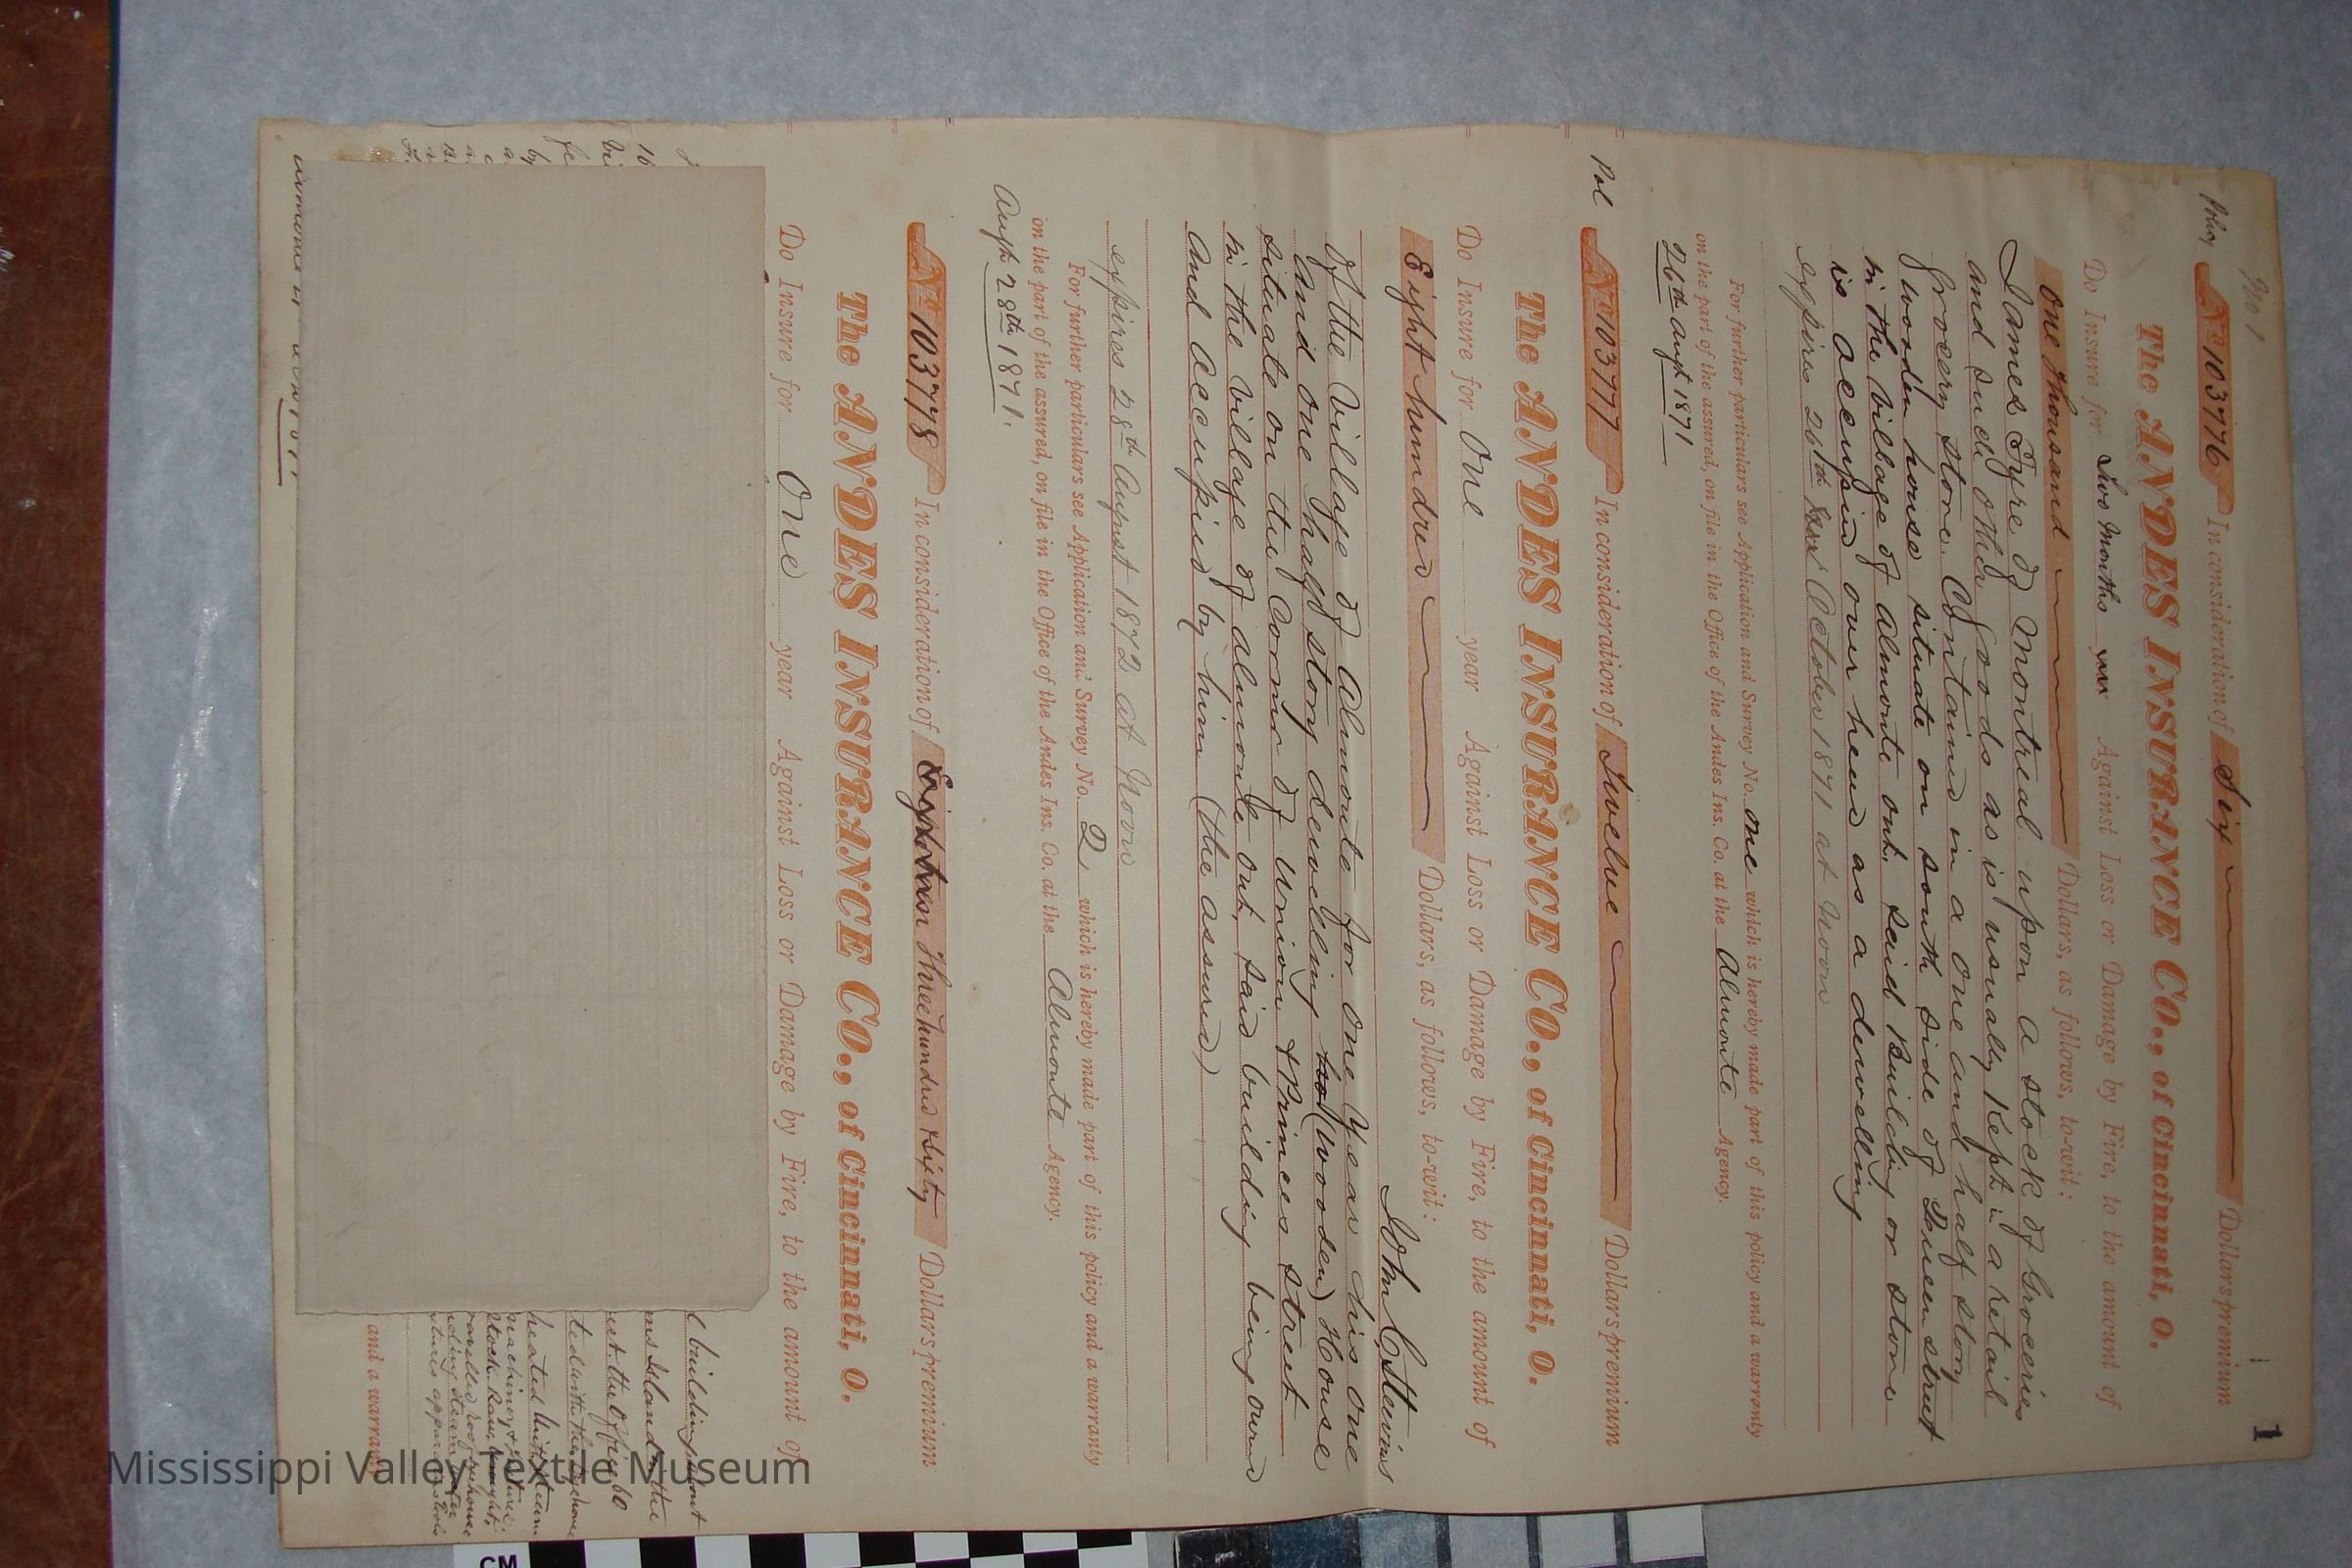 No 1
1
Policy No 103776 In consideration of Six Dollars premium
The ANDES INSURANCE CO., of Cincinnati, O.
Do Insure for Two Months year Against Loss or Damage by Fire, to the amount of
One Thousand Dollars, as follows, to-wit:
James Fyre of Montreal upon a stock of Groceries
and such other Goods as is usually Kept in a retail
Grocery store. Contained in a one and half story
wooden house situate on south side of Queen street
in the Village of Almonte Ont. said Building or store
is occupied over head as a dwelling
expires 26th October 1871 at Noon
For further particulars see Application and Survey No. One which is hereby made part of this policy and a warranty
on the part of the assured, on file in the Office of the Andes Ins. Co. at the Almonte Agency.
26th Augt 1871
Pol No 103777 In consideration of Twelve Dollars premium
The ANDES INSURANCE CO., of Cincinnati, O.
Do Insure for One year Against Loss or Damage by Fire, to the amount of
Eight hundred Dollars, as follows, to-wit:
John C. Stevens
Of the Village of Almonte for One Year his one
and one half story dwelling (wooden) House
situate on the Corner of Union & Princes street
in the Village of Almonte Ont, said building being owned
and Occupied by him (the assured)
expires 28th August 1872 at Noon
For further particulars see Application and Survey No. 2 which is hereby made part of this policy and a warranty
on the part of the assured, on file in the Office of the Andes Ins. Co. at the Almonte Agency.
Augt 28th 1871.
No 103778 In consideration of Three hundred & sixty Dollars premium
The ANDES INSURANCE CO., of Cincinnati, O.
Do Insure for One year Against Loss or Damage by Fire, to the amount of
building
Island the
16 the Office 60
heated with steam
machinery fixtures
and a warranty
CM
Mississippi Valley Textile Museum